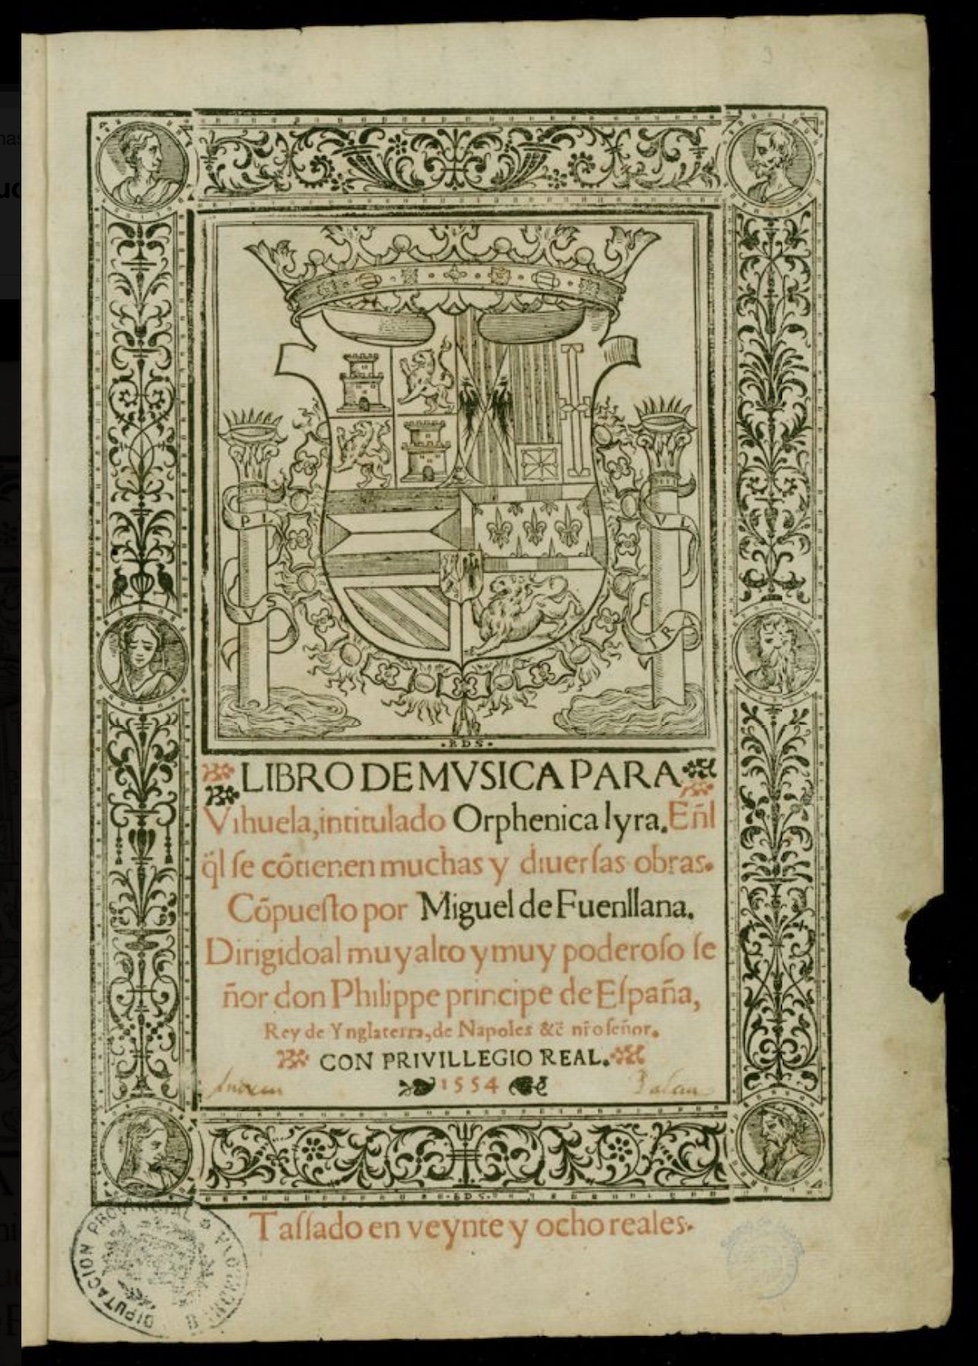 P
V
R
·BDS·
LIBRO DE MVSICA PARA
Vihuela, intitulado Orphenica lyra. Eñl
q̃l se cõtienen muchas y diuersas obras.
Cõpuesto por Miguel de Fuenllana.
Dirigido al muy alto y muy poderoso se
ñor don Philippe principe de España,
Rey de Ynglaterra, de Napoles &c̃ nr̃o señor.
CON PRIVILLEGIO REAL.
1554
·BDS·
Tassado en veynte y ocho reales.
DIPUTACION PROVINCIAL D BARCELONA